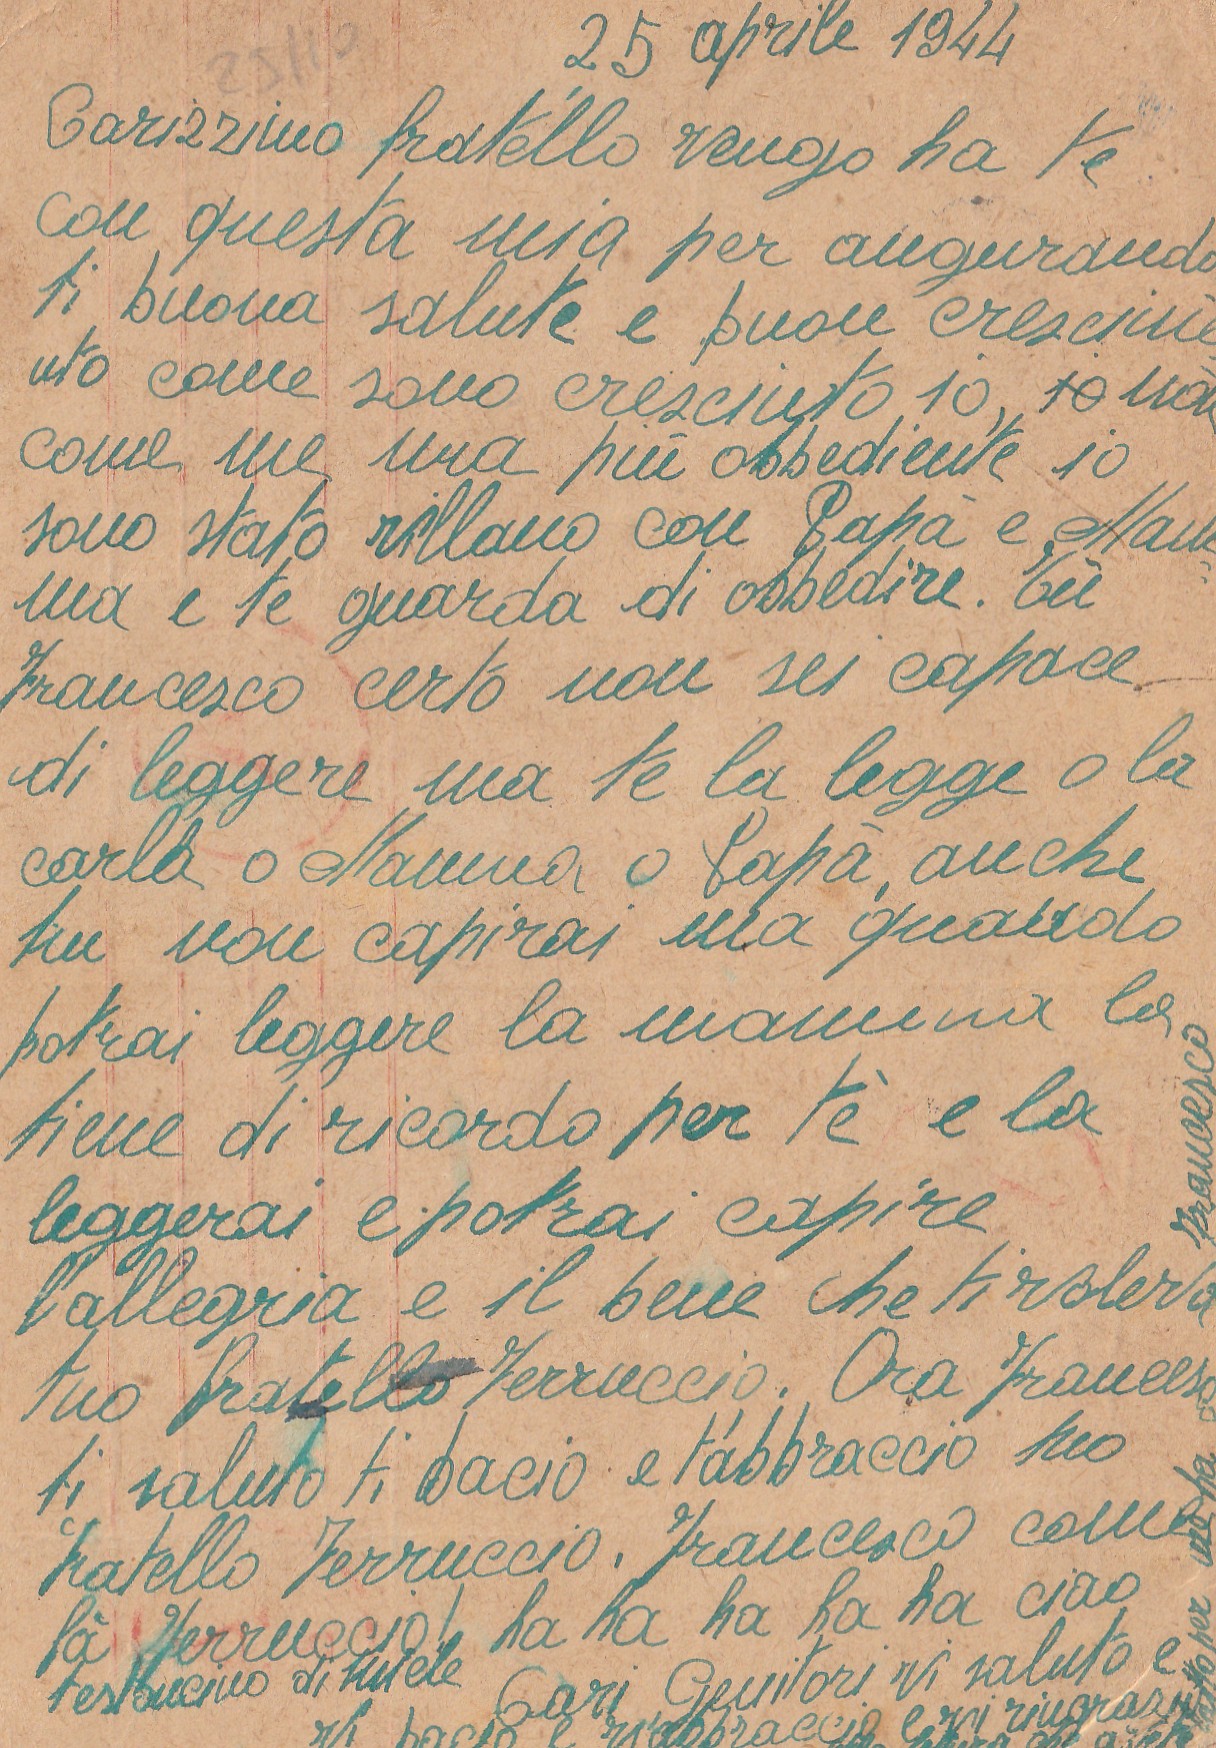 25 aprile 1944
Carizzimo fratello vengo ha te
con questa mia per augurando
ti buona salute e buon crescime
nto come sono cresciuto io, io non
come me ma più obbediente io
sono stato villano con Papà e Mam
ma e te guarda di obbedire. Tù
Francesco certo non sei capace
di leggere ma te la legge o la
carla o Mamma o Papà, anche
tu non capirai ma quando
potrai leggere la mamma la
tiene di ricordo per tè e la
leggerai e potrai capire
l'allegria e il bene che ti voleva
tuo fratello Ferruccio. Ora Francesco
ti saluto ti bacio e t'abbraccio tuo
fratello Ferruccio. Francesco come
fà Ferruccio! ha ha ha ha ha ciao
testoncino di miele
Cari Genitori vi saluto e
vi bacio e v'abbraccio e vi ringrazio
Francesco